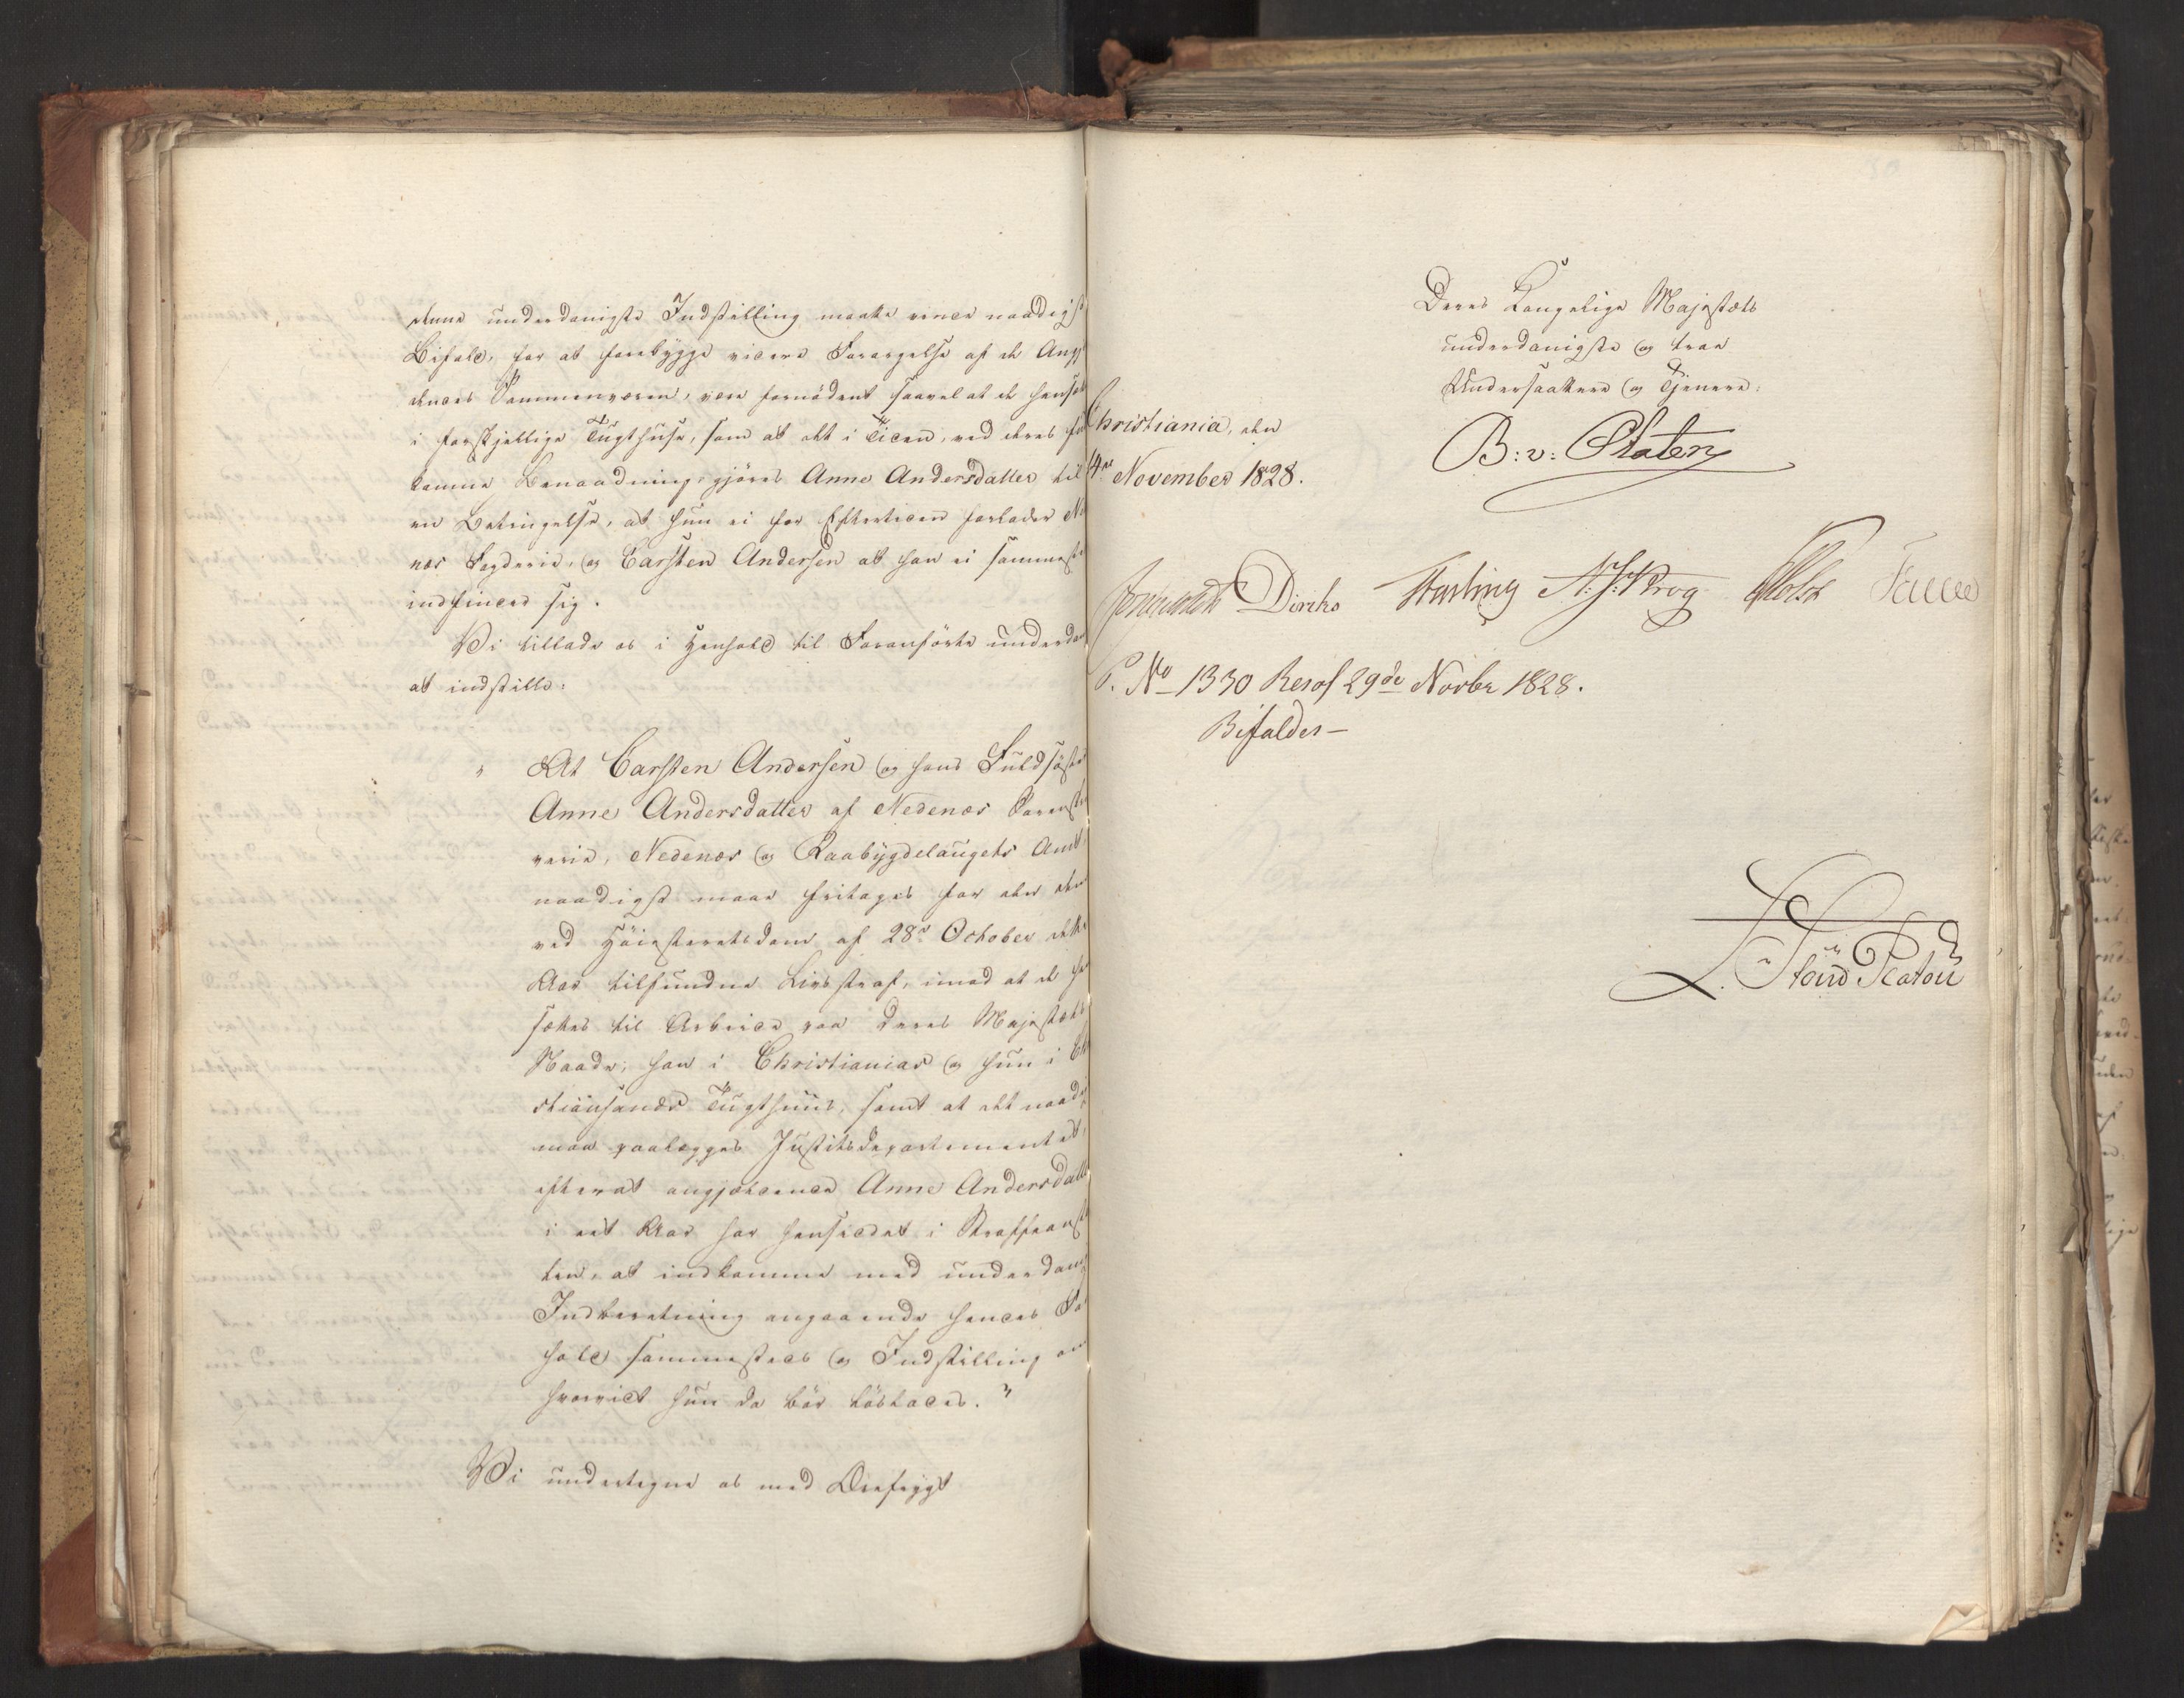 denne underdanigste Indstilling maatte vinde naadigst
Bifald, for at forebygge videre Forargelse af de Ang
dendes Sammenværen, være fornödent saavel at de hensæt
i forskjellige Tugthuse, som at det i Tiden, ved deres
komme Benaadning, gjöres Anne Andersdatter til
en Betingelse, at hun ei for Eftertiden forlader Ne
næs Fogderie, og Carsten Andersen at han ei sammest
indfinder sig.
Vi tillade os i Henhold til Foranförte underdan
at indstille:
" At Carsten Andersen og hans Fuldsöster
Anne Andersdatter af Nedenæs Sorenskr
verie, Nedenæs og Raabygdelaugets Amt,
naadigst maae fritages for den dem
ved Höiesteretsdom af 28de October dette
Aar tilfundne Livsstraf, imod at de hen
sættes til Arbeide paa Deres Majestæts
Naade, han i Christianias og hun i Chri
stiansands Tugthuus, samt at det naadigst
maa paalægges Justitsdepartementet,
efterat angjældende Anne Andersdatter
i eet Aar har hensiddet i Straffeanst
ten, at indkomme med underdanig
Indberetning angaaende hendes For
hold sammesteds og Indstilling om
hvorvidt hun da bör löslades. "
Vi undertegne os med Dybfrygt
Deres Kongelige Majestæts
underdanigste og troe
Undersaatter og Tjenere:
Christiania, den
4de November 1828.
B: v: Platen
Diriks
N. J. Krog
Holst
P. No 1330 Resol 29de Novbr 1828.
Bifaldes —
L. Stoud Platou